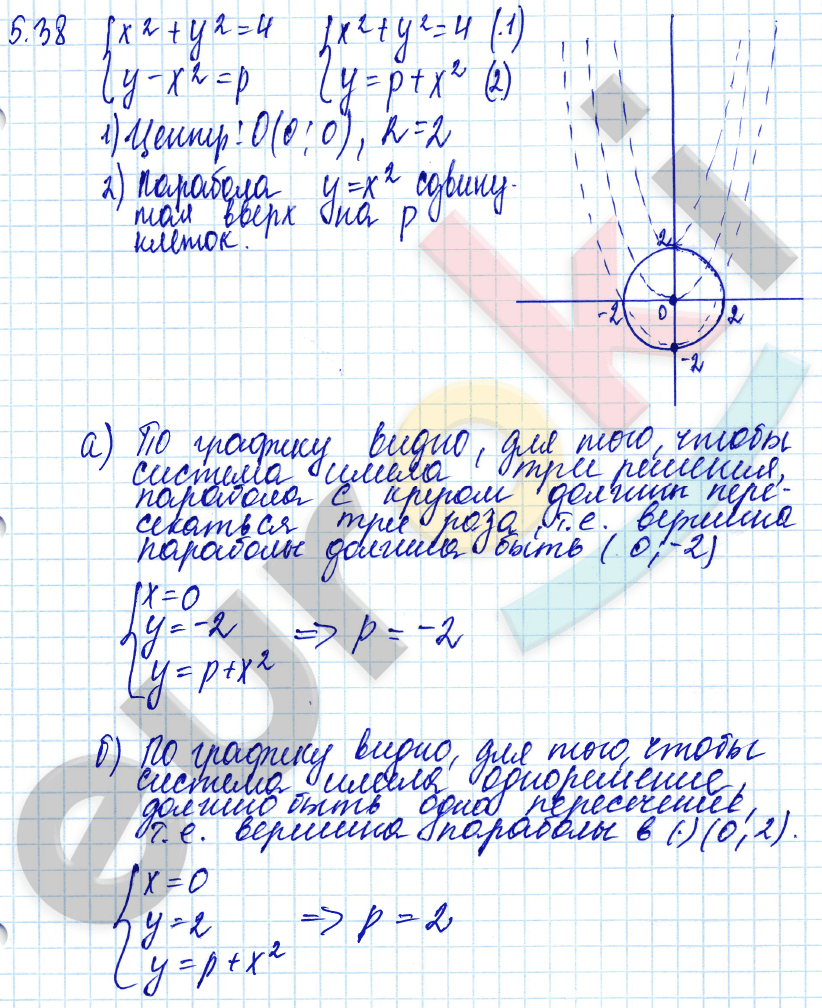 5.38 { x² + y² = 4 { x² + y² = 4 (1)
{ y - x² = p { y = p + x² (2)
1) Центр: O(0; 0), R=2
2) Парабола y=x² сдвину-
тая вверх на p
клеток.
2
-2 0 2
-2
а) По графику видно, для того, чтобы
система имела три решения,
парабола с кругом должны пере-
секаться три раза, т.е. вершина
параболы должна быть (0; -2)
{ x = 0
{ y = -2 => p = -2
{ y = p + x²
б) По графику видно, для того, чтобы
система имела одно решение,
должно быть одна пересечение,
т.е. вершина параболы в (·) (0; 2).
{ x = 0
{ y = 2 => p = 2
{ y = p + x²
euroki